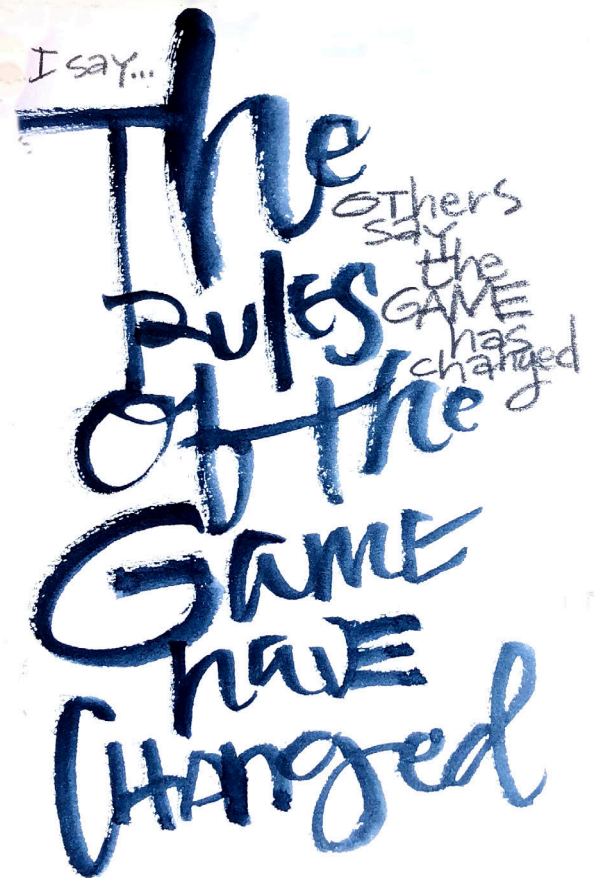 I say...
The
RULES
Of the
GAME
havE
CHAnged
OThers
say
the
GAME
has
changed